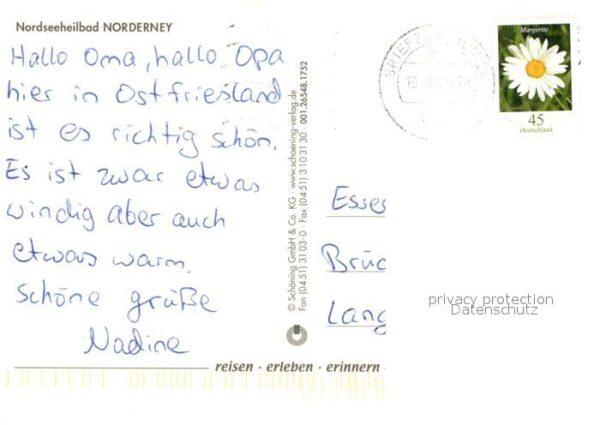 Nordseeheilbad NORDERNEY
Hallo Oma, hallo Opa
hier in Ostfriesland
ist es richtig schön.
Es ist zwar etwas
windig aber auch
etwas warm.
Schöne grüße
Nadine
© Schöning GmbH & Co. KG · www.schoening-verlag.de
Fon (04 51) 31 03-0 · Fax (04 51) 3 10 31 30 001.26548.1752
Margerite
45
Deutschland
Esse
Brüc
Lang
privacy protection
Datenschutz
reisen · erleben · erinnern